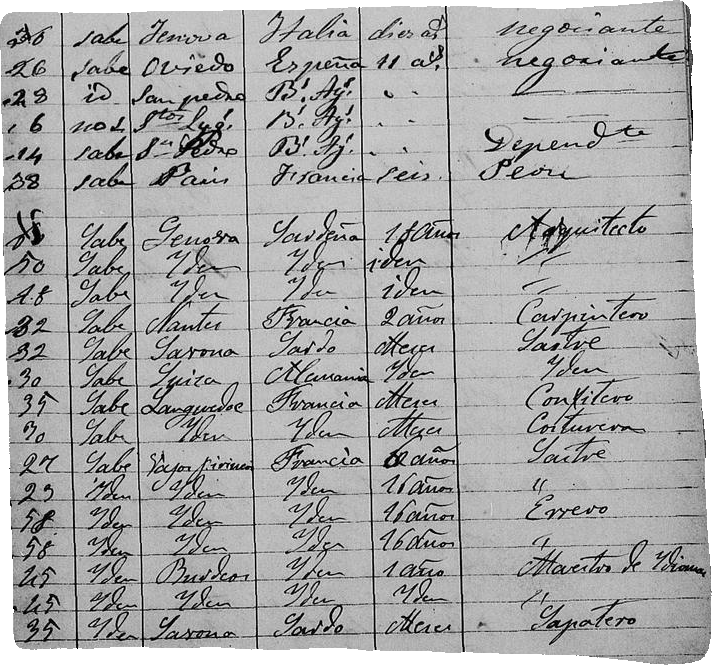 26 sabe Jenova Italia diez as negociante
26 sabe Oviedo España 11 as negociante
28 id San pedro Bs Ays " —
16 no s Stos Lugs Bs Ays " —
14 sabe Sn Pedro Bs Ays " Dependte
38 sabe Paris Francia seis Peon
Sabe Genova Sardeña 18 años Arquitecto
50 Sabe Yden Yden iden "
48 Sabe Yden Yden iden "
32 Sabe Nantes Francia 2 años Carpintero
32 Sabe Savona Sardo Meses Sastre
30 Sabe Suiza Alemania Yden Yden
35 Sabe Languedoc Francia Meses Confitero
30 Sabe Yden Yden Meses Costurera
27 Sabe Vajos pirineos Francia años Sastre
23 Yden Yden Yden 16 años "
58 Yden Yden Yden 16 años Errero
58 Yden Yden Yden 16 años "
45 Yden Burdeos Yden 1 año Maestro de Ydiomas
45 Yden Yden Yden Yden "
35 Yden Savona Sardo Meses Sapatero